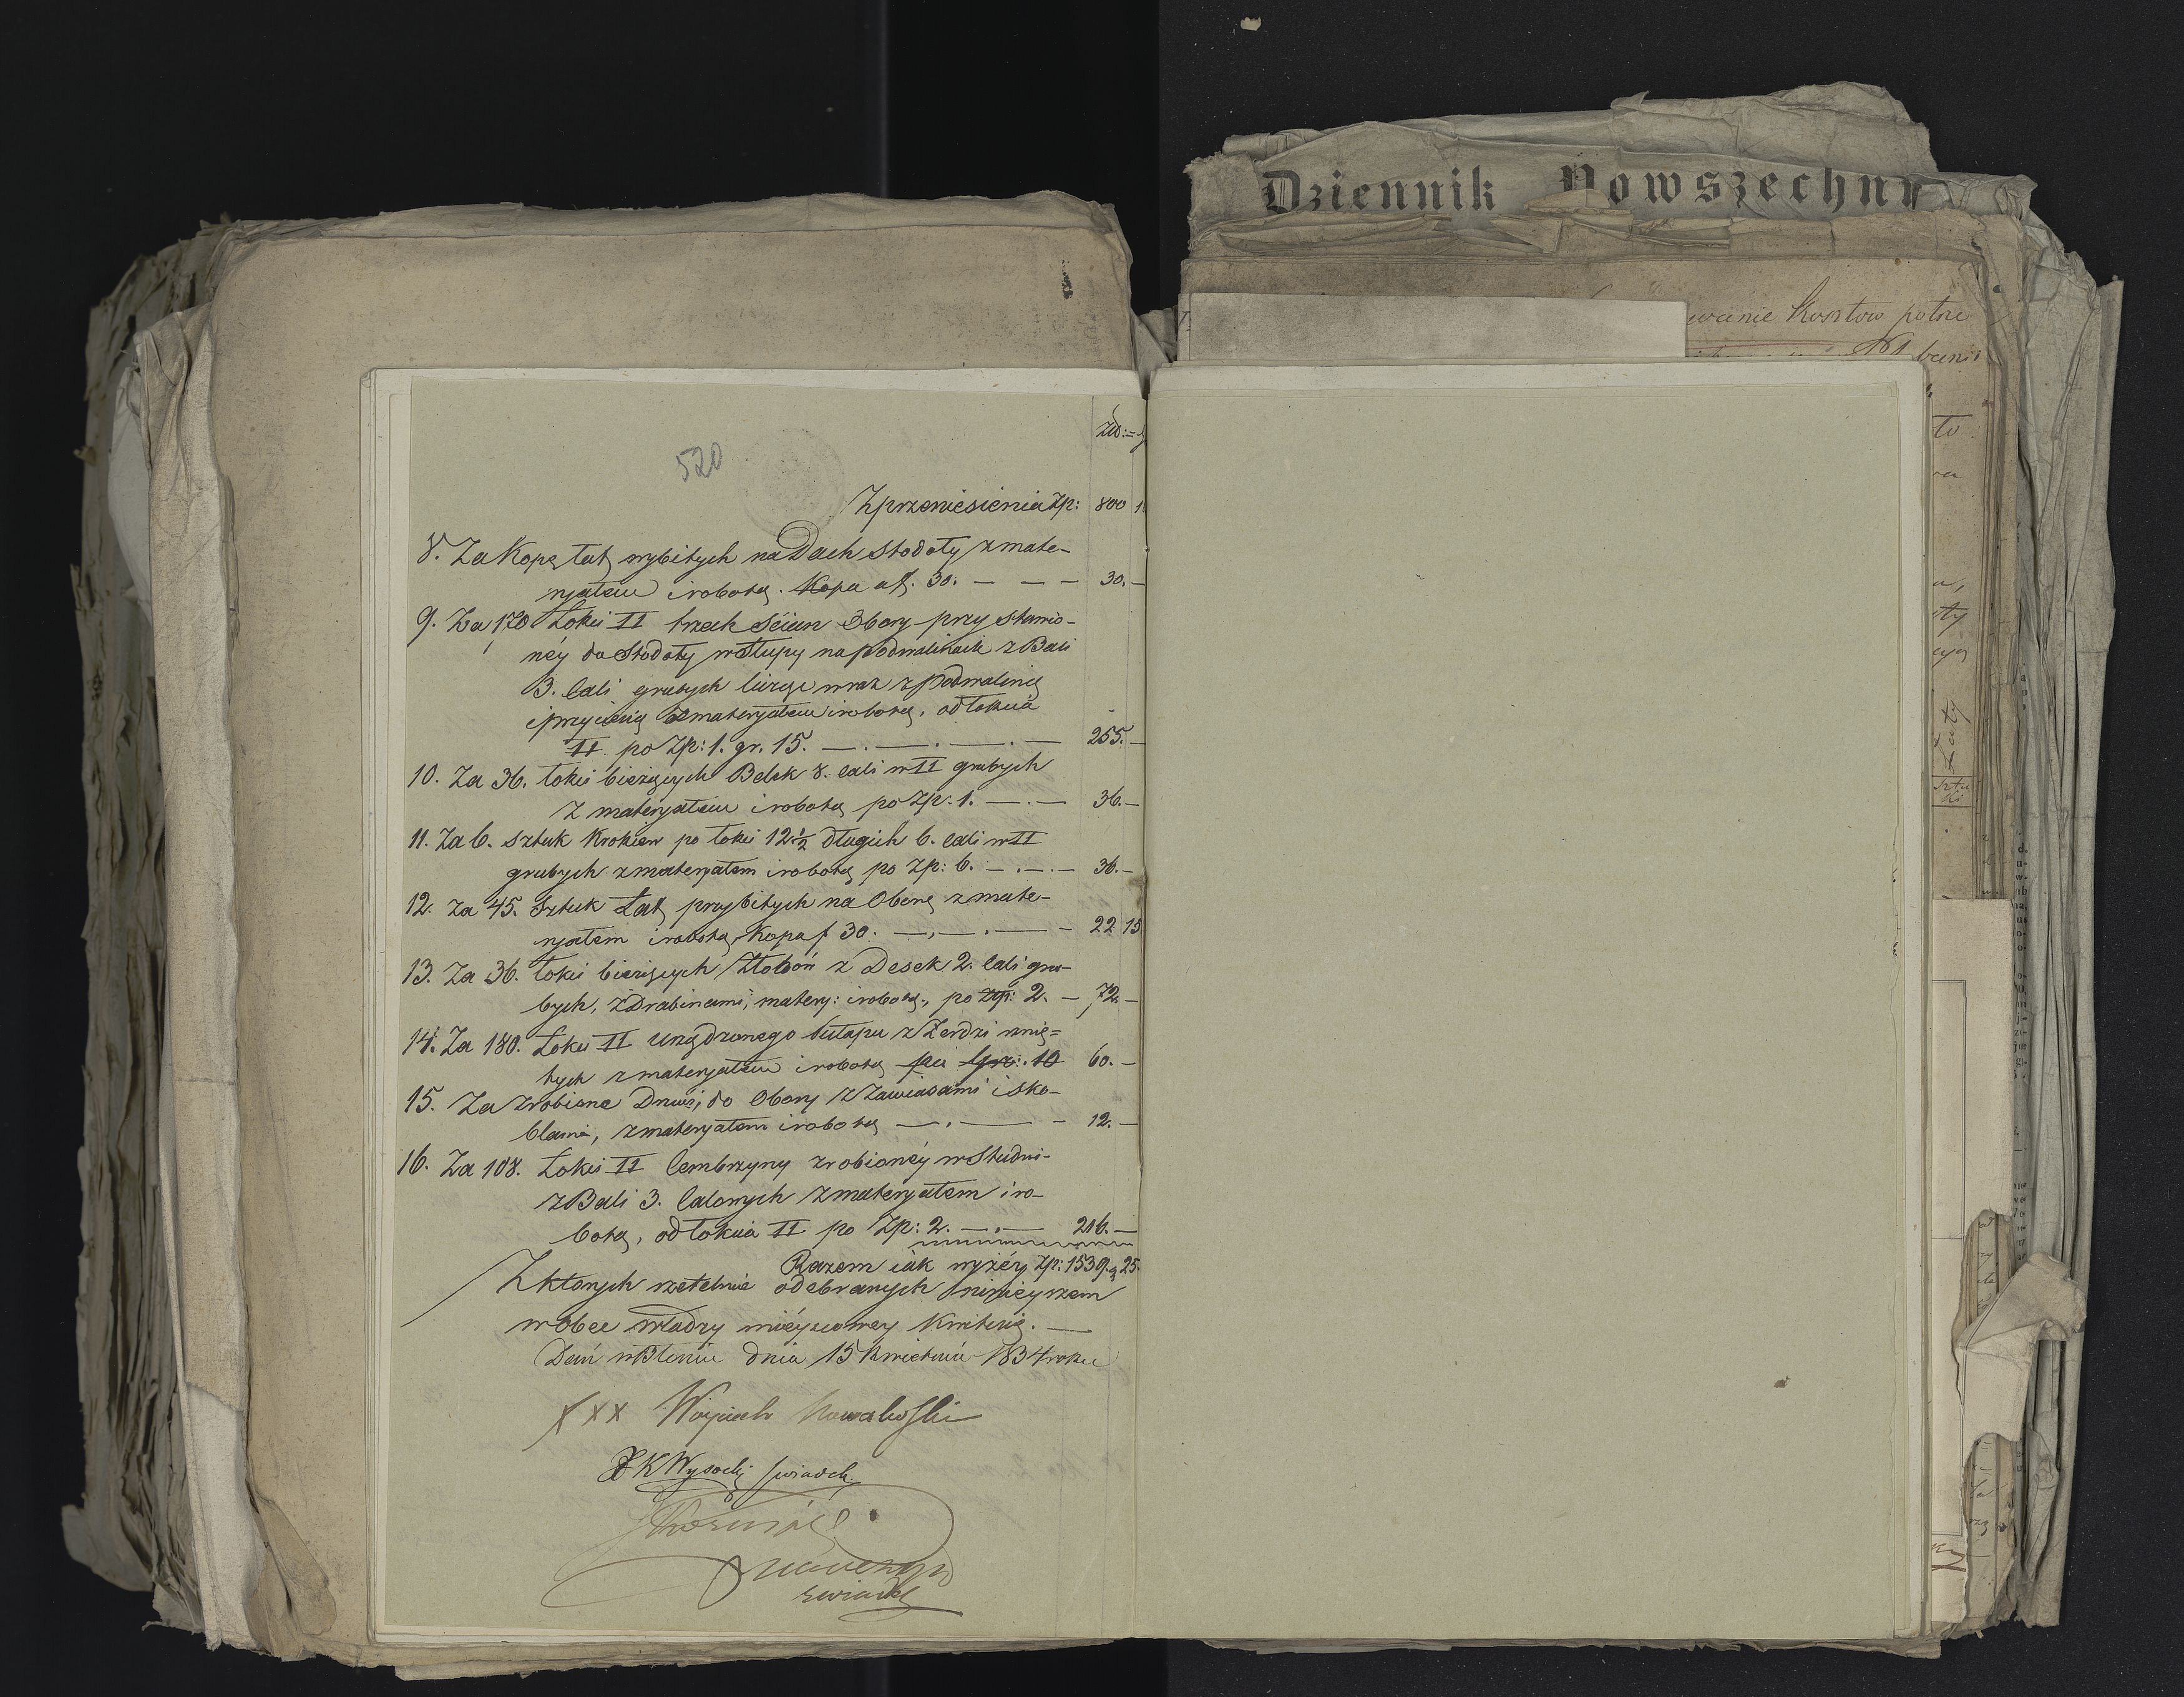 Dziennik Powszechny
wanie Kosztów potrze
520
Złó: g
Z przeniesienia Zp: 800 1
8. Za Kopę łat wybitych na Dach Stodoły z mate-
ryałem i robotą. Kopa a f. 30. — — — 30. —
9. Za 170 Łokci II trzech ścian Obory przy stawio-
néy do Stodoły w Słupy na podwalinach z Bali
3. cali grubych licząc wraz z podwaliną
i przycieśią z materyałem i robotą, od łokcia
II. po Zp: 1. gr. 15. — . — . — . — 255. —
10. Za 36. łokci bieżących Belek 8. cali w II grubych
z materyałem i robotą po Zp: 1. — . — 36. —
11. Za 6. sztuk Krokiew po łokci 12 1/2 długich 6. cali w II
grubych z materyałem i robotą po Zp: 6. — . — . — 36. —
12. Za 45. Sztuk Łat przybitych na Oborę z mate-
ryałem i robotą, Kopa f 30. — . — . — — 22 15
13. Za 36. łokci bieżących Żłobów z Desek 2. cali gru-
bych, z Drabinami, matery: i robotą, po Zp: 2. — 72. —
14. Za 180. Łokci II urządzonego Pułapu z Żerdzi rznię=
tych z materyałem i robotą po gr: 10 60. —
15. Za zrobione Drzwi do Obory z Zawiasami i sko-
blami, z materyałem i robotą — . — — 12. —
16. Za 108. Łokci II Cembrzyny zrobionéy w Studni
z Bali 3. calowych z materyałem i ro-
botą, od łokcia II po Zp: 2. — . — 216. —
Razem iak wyżéy Zp: 1539. g 25.
Z ktorych rzetelnie odebranych ninieyszem
w obec władzy mieyscowey Kwituię. —
Dań w Błoniu dnia 15 Kwietnia 1834 roku
XXX Woyciech Kowalski
K Wysocki świadek
świadek